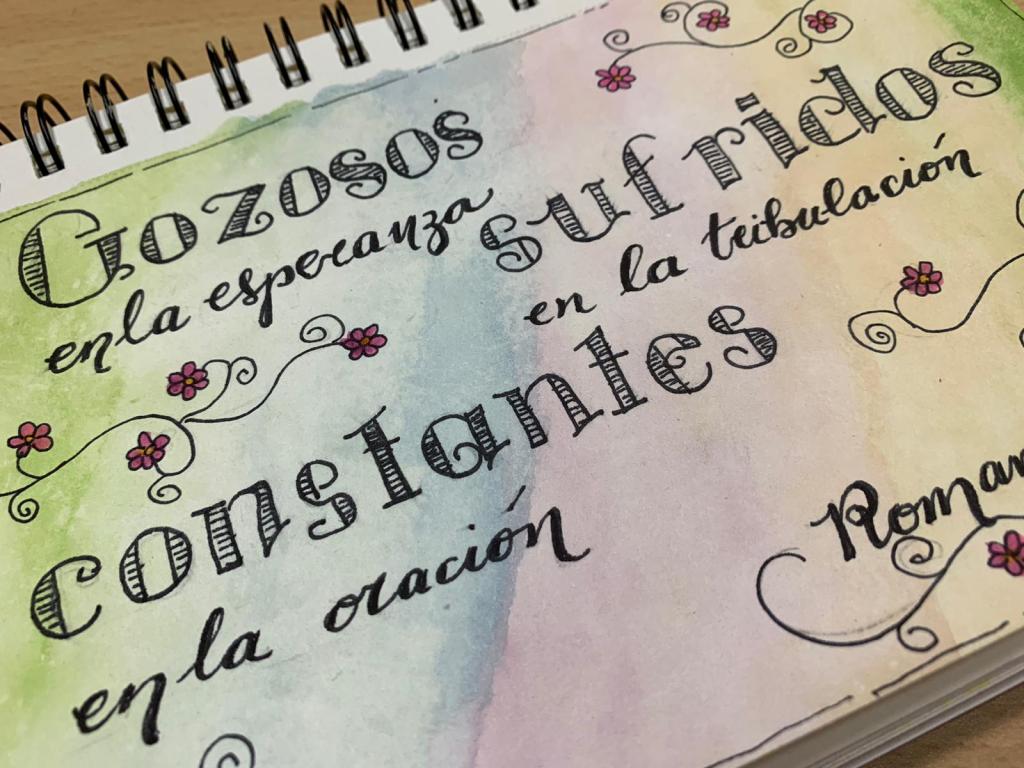 Gozosos
en la esperanza
sufridos
en la tribulación
constantes
en la oración